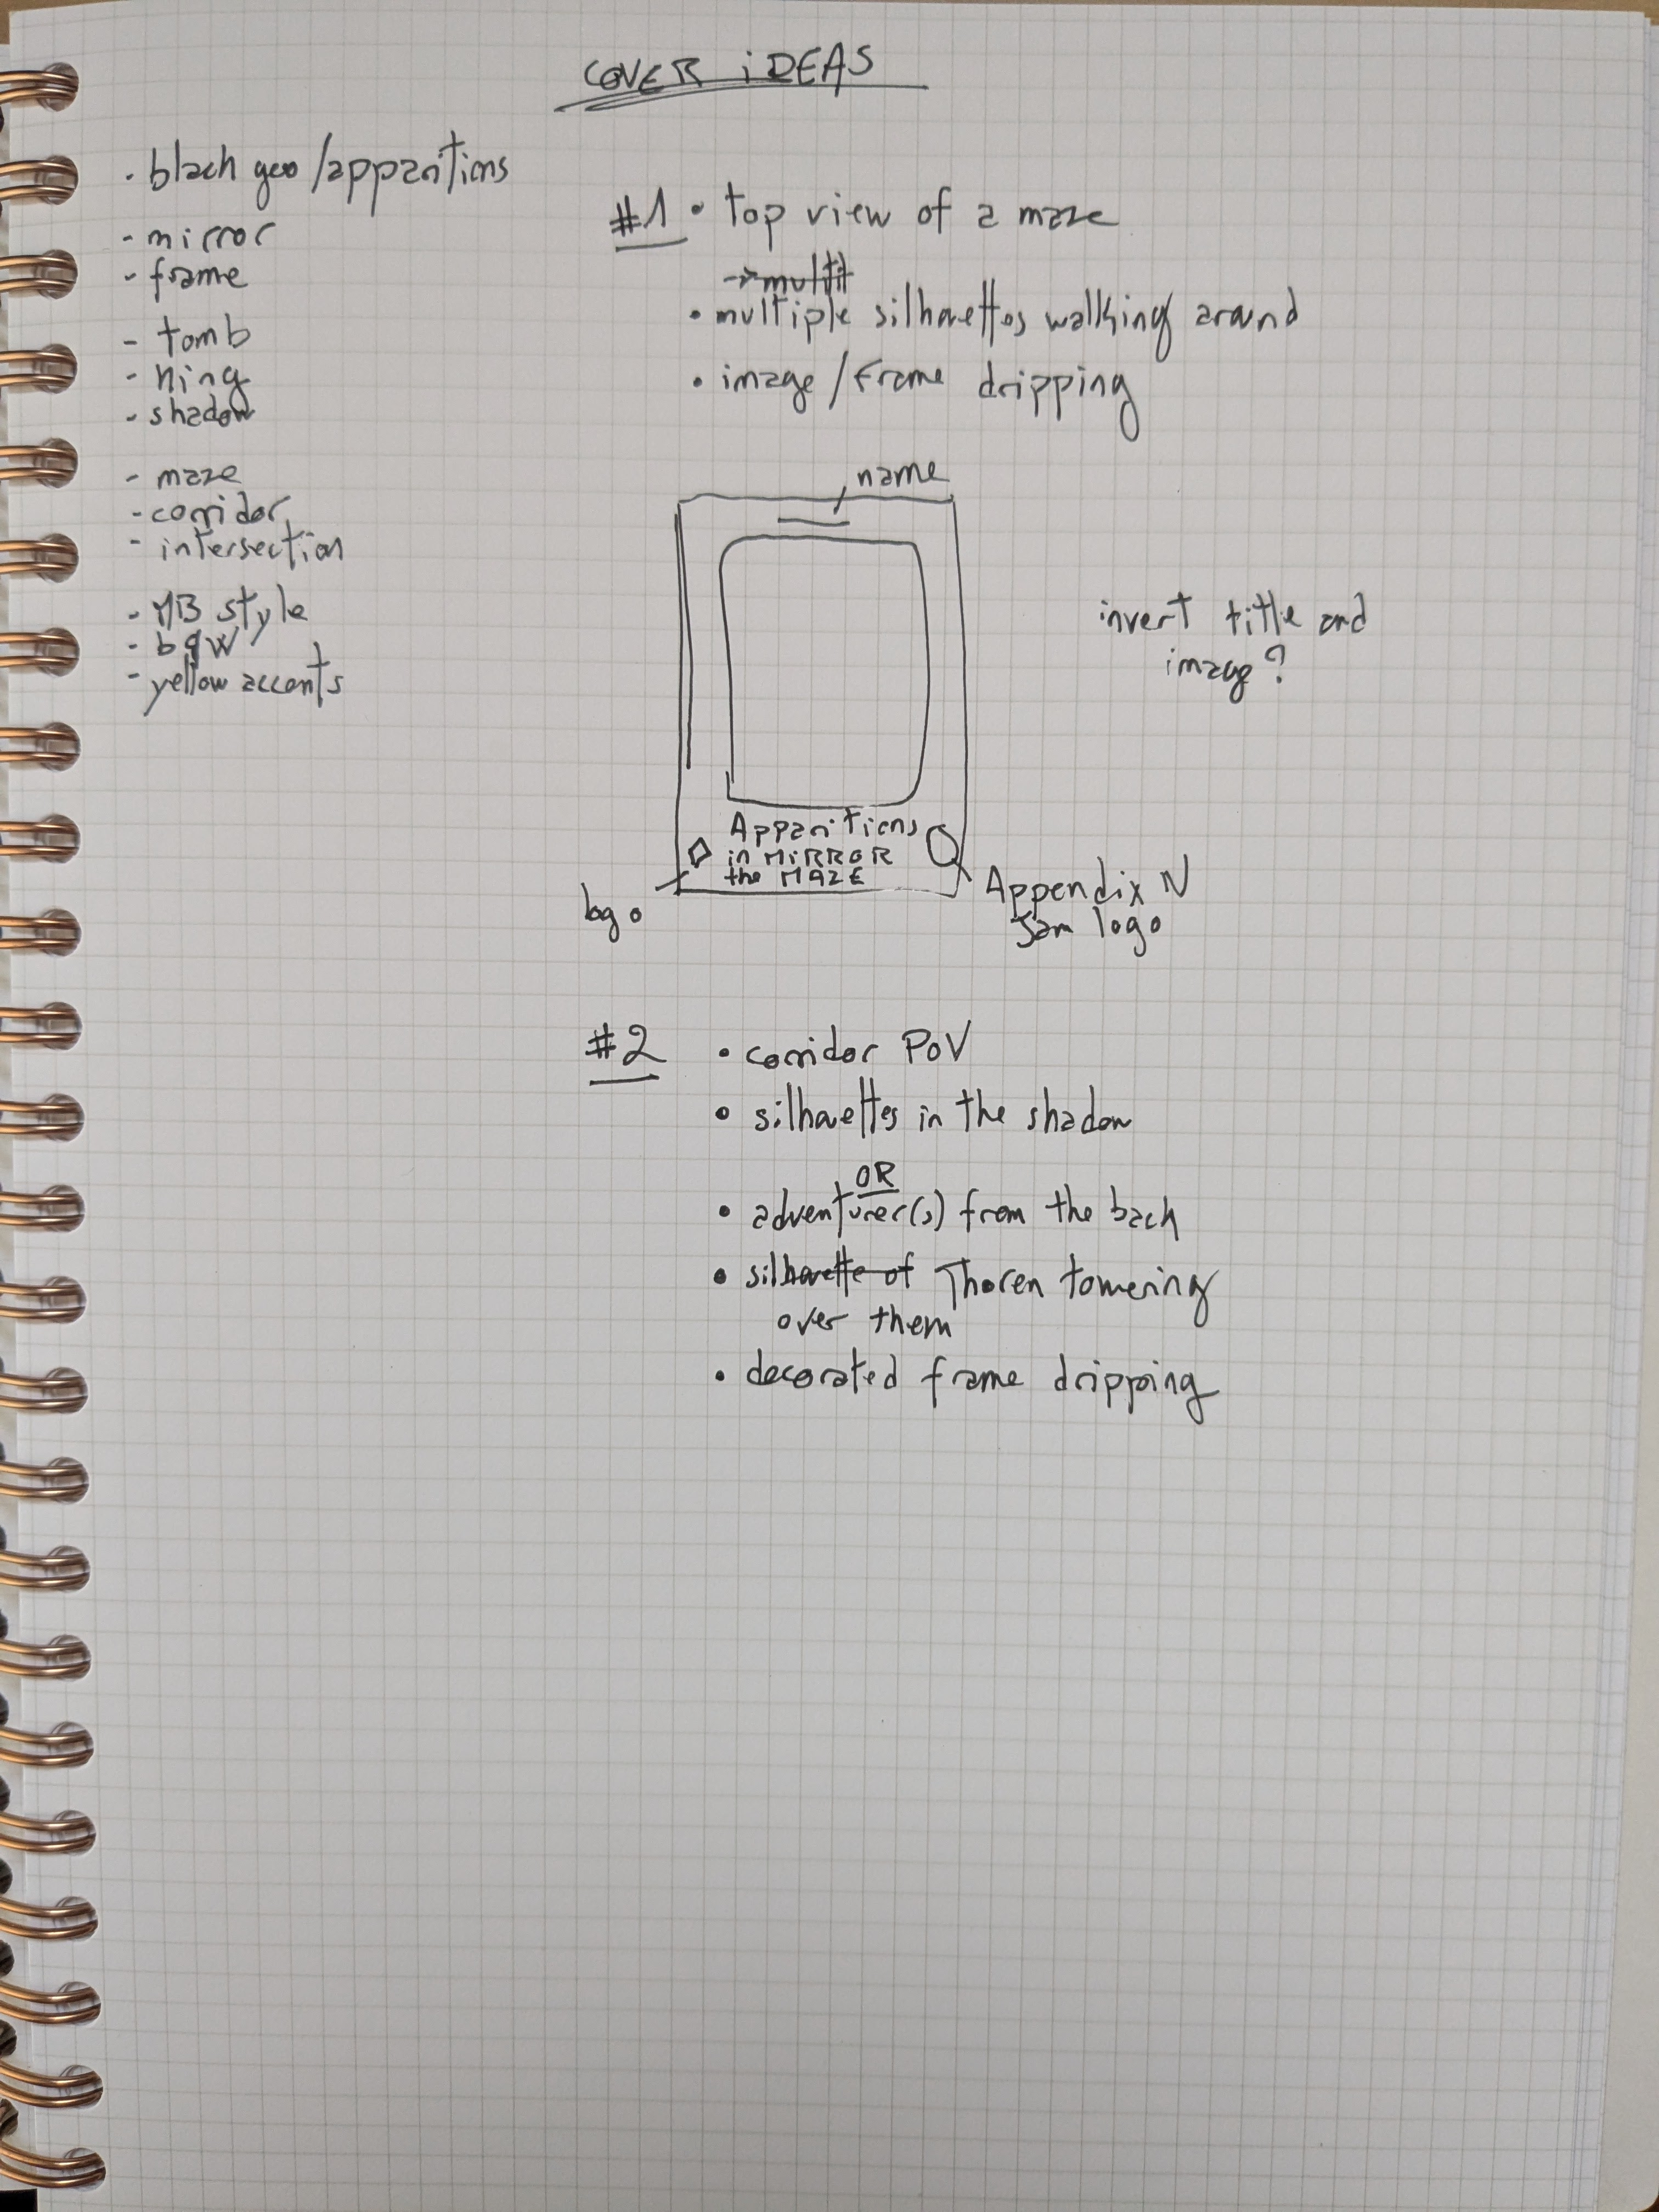 COVER iDEAS
. black goo /apparitions
- mirror
- frame
- tomb
- king
- shadow
- maze
- corridor
- intersection
- MB style
- b&W
- yellow accents
#1 • top view of a maze
→ multit
• multiple silhouettes walking around
• image/frame dripping
name
invert title and
image?
Apparitions
in MiRROR
the MAZE
logo
Appendix N
Jam logo
#2 • corridor PoV
• silhouettes in the shadow
OR
• adventurer(s) from the back
• silhouette of Thoren towering
over them
• decorated frame dripping